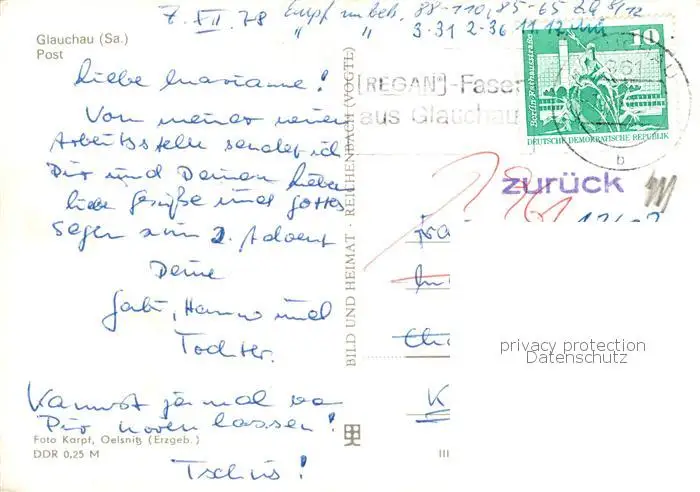 7. XII. 78 Empf unbek. 88-110, 85-65
3-31 2-36 11.12.
Glauchau (Sa.)
Post
Liebe Marianne!
Von meiner neuen
Arbeitsstelle sendet ich
Dir und Deinen Lieben
liebe Grüße und Gottes
Segen zum 2. Advent
Deine
Gabi, Hanno und
Tochter.
Kannst ja mal von
Dir hören lassen!
Tschüs!
Foto Karpf, Oelsnitz (Erzgeb.)
DDR 0,25 M
BILD UND HEIMAT · REICHENBACH (VOGTL)
III
[REGAN]-Faser
aus Glauchau
Berlin, Rathausstraße
10
DEUTSCHE DEMOKRATISCHE REPUBLIK
b
zurück
Fra
K
privacy protection
Datenschutz